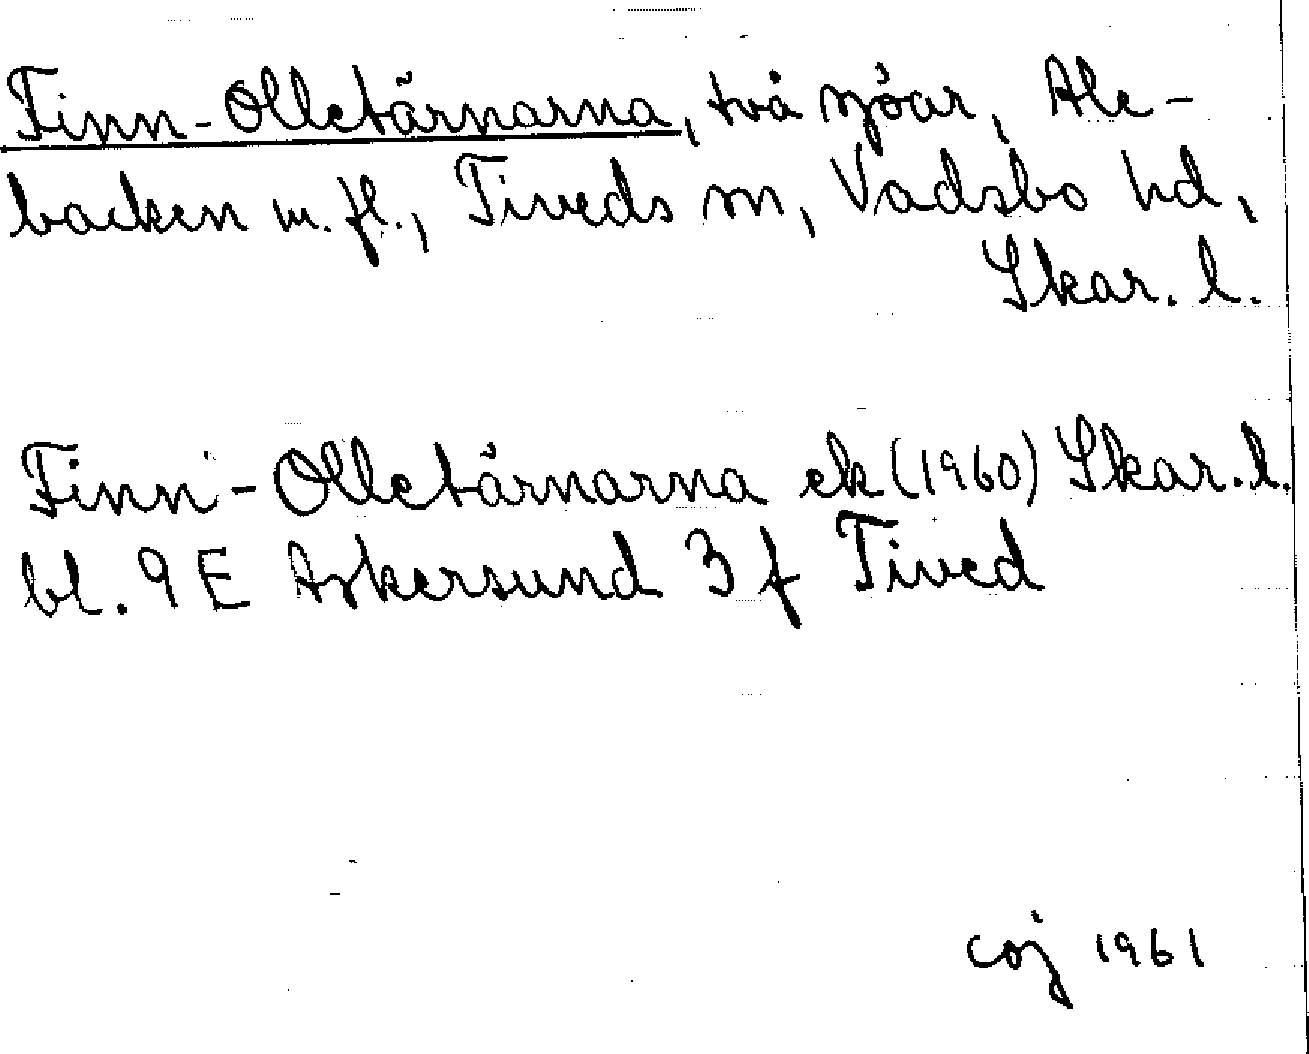 Finn-Olletärnarna, två sjöar, Ale-
backen m. fl., Tiveds sn, Vadsbo hd,
Skar. l.
Finn-Olletärnarna ek (1960) Skar. l.
bl. 9 E Askersund 3 f Tived
coj 1961